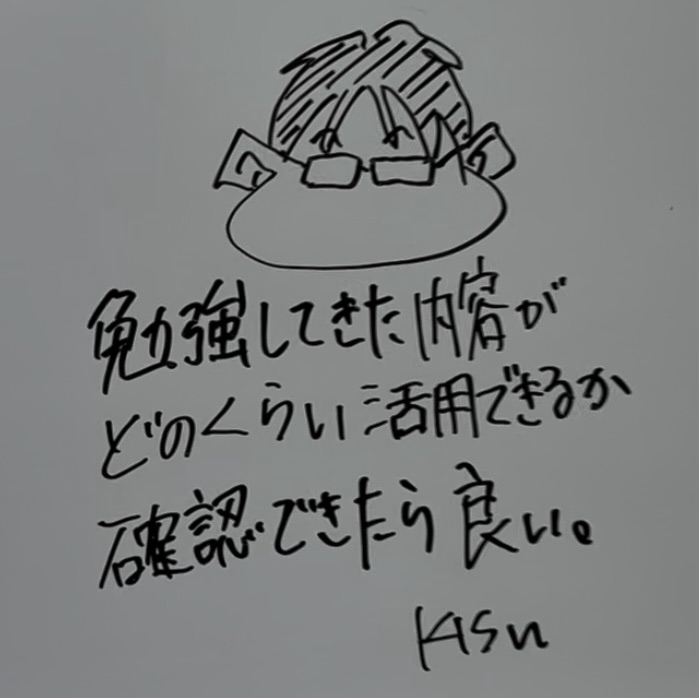 勉強してきた内容が
どのくらい活用できるか
確認できたら良い。
KISU